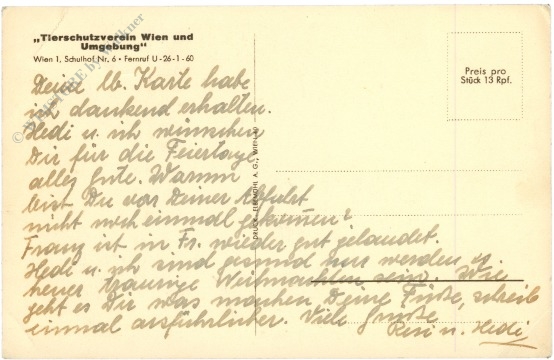 „Tierschutzverein Wien und
Umgebung"
Wien 1, Schulhof Nr. 6 • Fernruf U-26-1-60
Preis pro
Stück 13 Rpf.
Deine lb. Karte habe
ich dankend erhalten.
Hedi u. ich wünschen
Dir für die Feiertage
alles gute. Warum
bist Du vor Deiner Abfahrt
nicht noch einmal gekommen?
Franz ist in Fr. wieder gut gelandet.
Hedi u. ich sind gesund nur werden es
heuer traurige Weihnachten sein. Wie
geht es Dir was machen Deine Füße, schreib
einmal ausführlicher. Viele Grüße
Resi u. Hedi
DRUCK: ELBEMÜHL A. G., WIEN